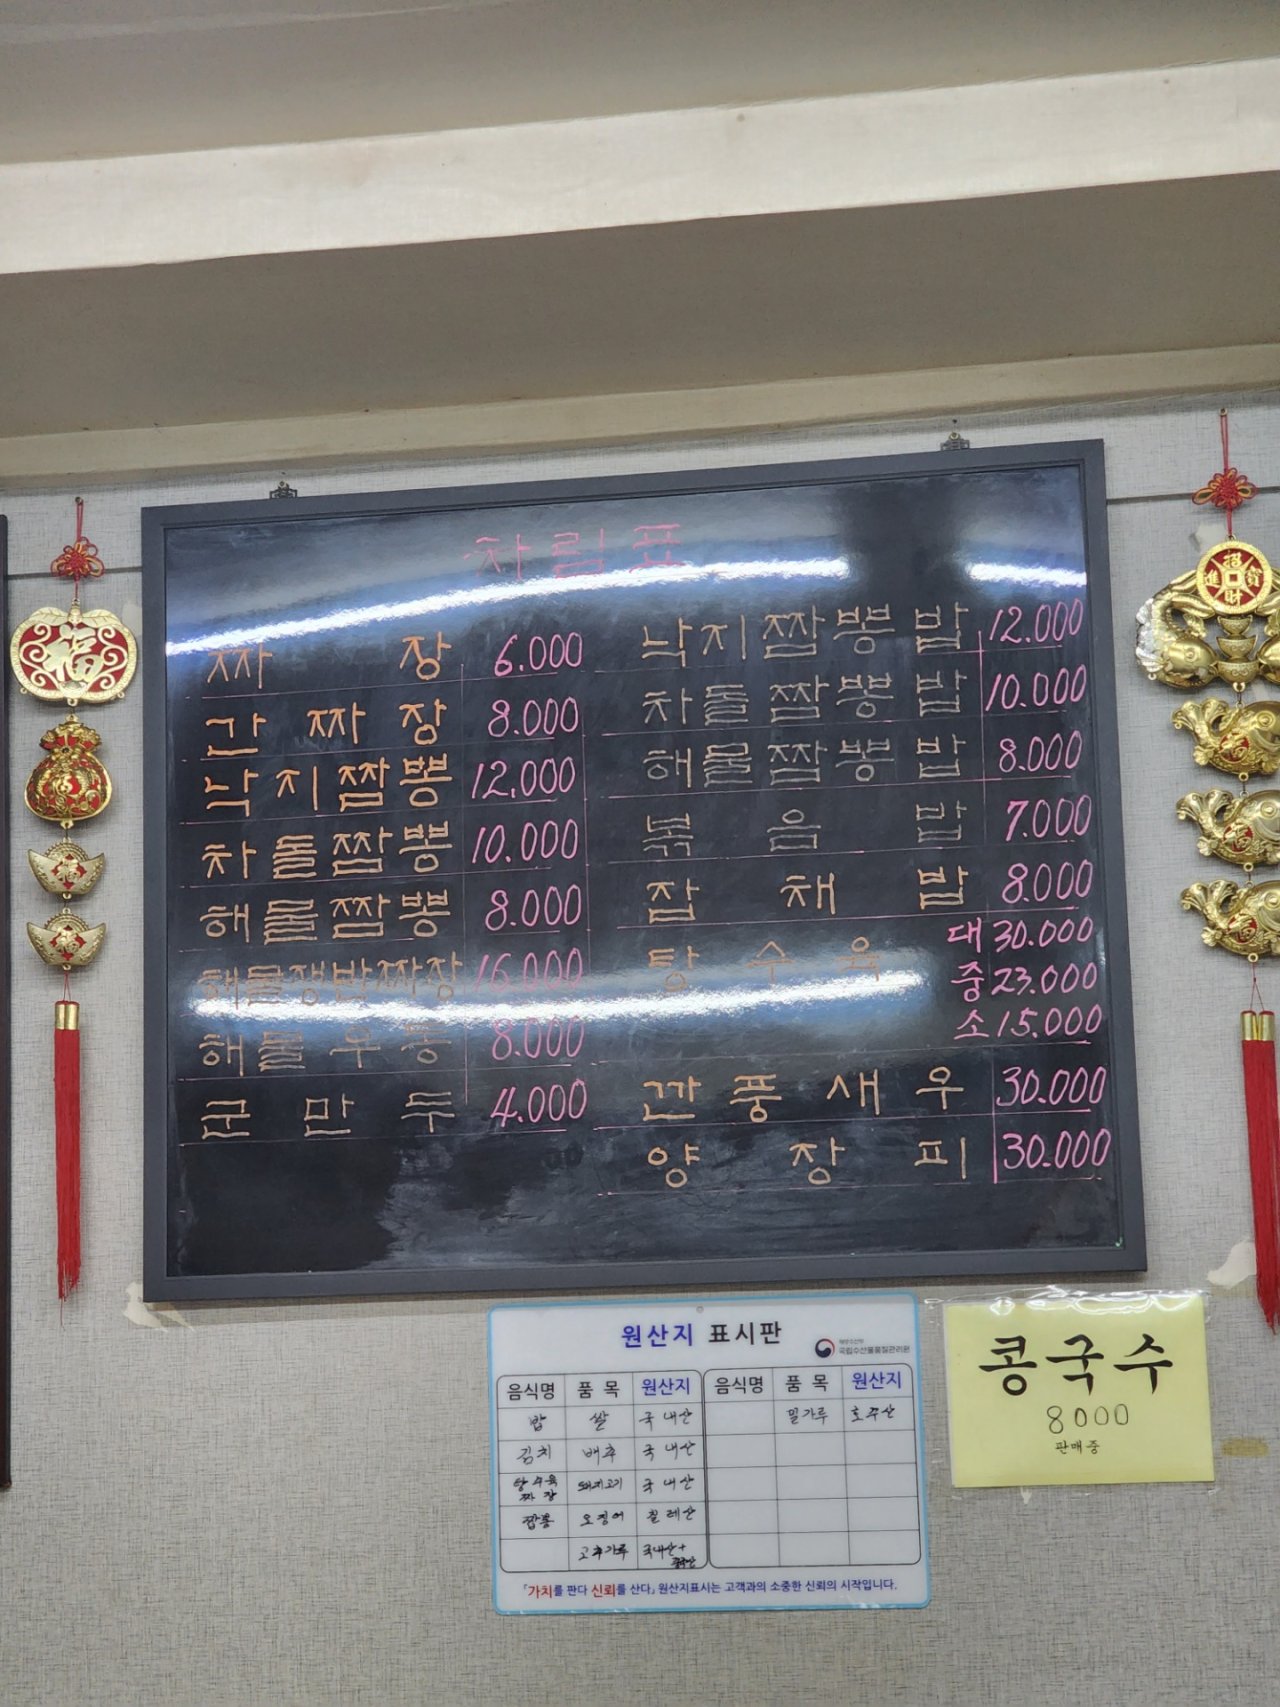 차림표
짜장 6.000
간짜장 8.000
낙지짬뽕 12.000
차돌짬뽕 10.000
해물짬뽕 8.000
해물쟁반짜장 16.000
해물우동 8.000
군만두 4.000
낙지짬뽕밥 12.000
차돌짬뽕밥 10.000
해물짬뽕밥 8.000
볶음밥 7.000
잡채밥 8.000
탕수육 대 30.000
중 23.000
소 15.000
깐풍새우 30.000
양장피 30.000
원산지 표시판
해양수산부
국립수산물품질관리원
음식명 품목 원산지
밥 쌀 국내산
김치 배추 국내산
탕수육 짜장 돼지고기 국내산
짬뽕 오징어 칠레산
고추가루 국내산+중국산
음식명 품목 원산지
밀가루 호주산
「가치를 판다 신뢰를 산다」 원산지표시는 고객과의 소중한 신뢰의 시작입니다.
콩국수
8000
판매중
福
招財進寶